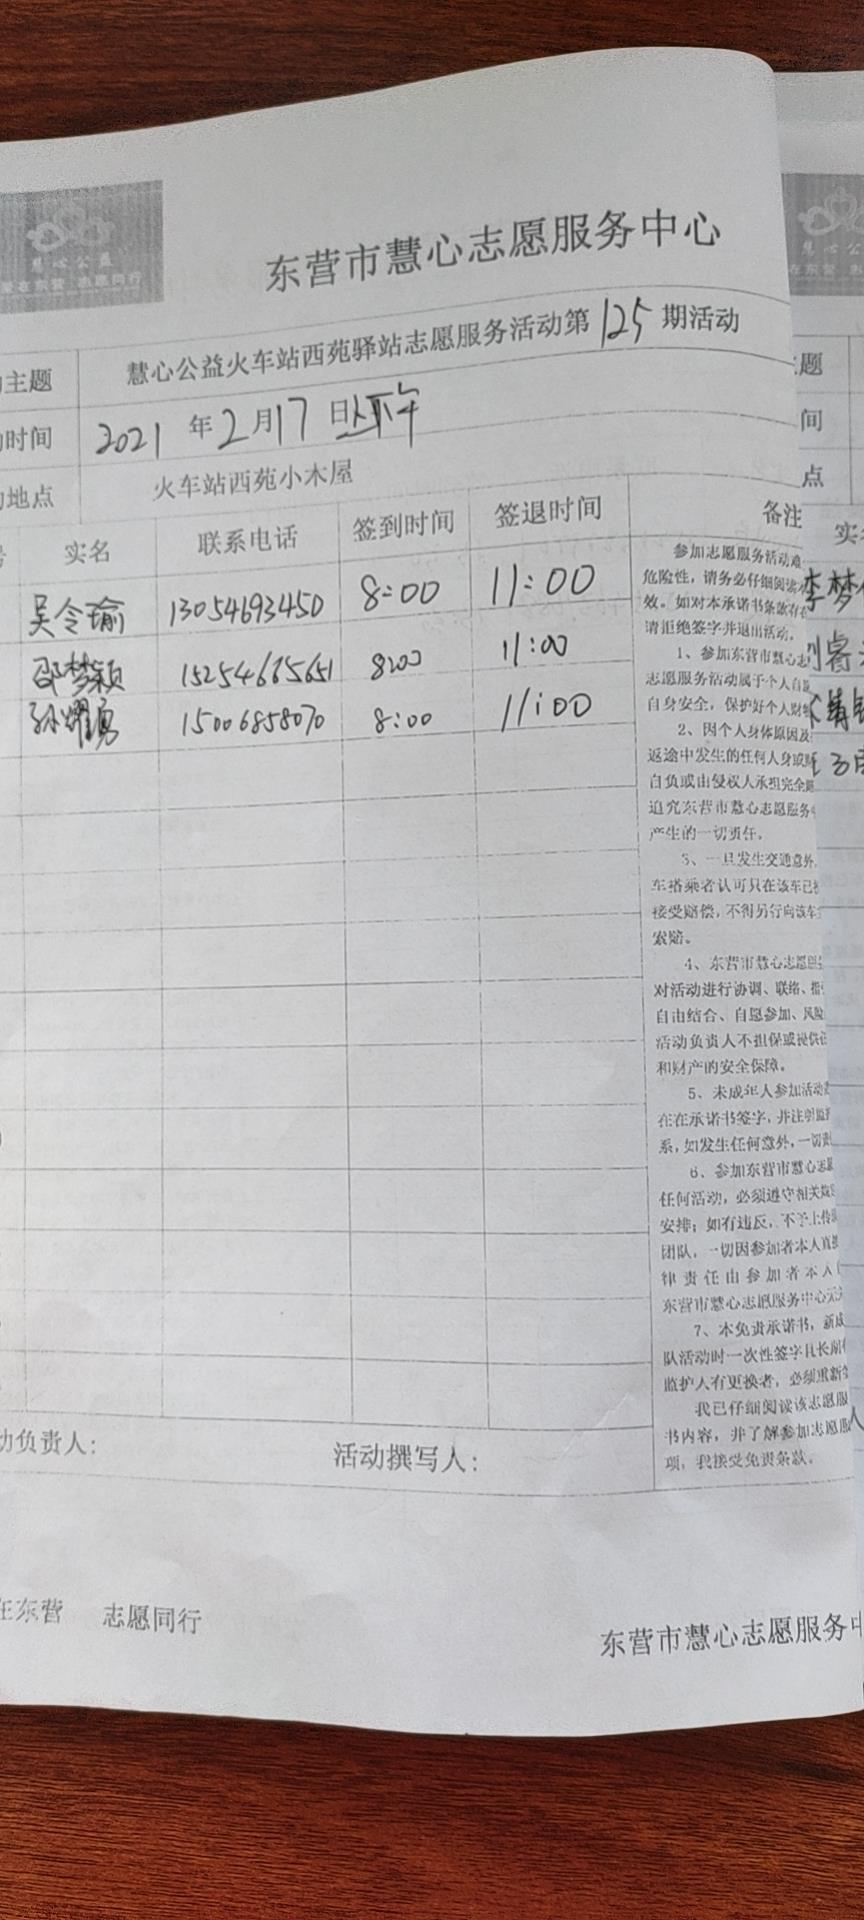 慧心公益
爱在东营 志愿同行
东营市慧心志愿服务中心
主题 慧心公益火车站西苑驿站志愿服务活动第125期活动
时间 2021年2月17日上午
地点 火车站西苑小木屋
号 实名 联系电话 签到时间 签退时间 备注
吴令瑜 13054693450 8:00 11:00
邵梦颖 15254665651 8:00 11:00
孙耀勇 15006858070 8:00 11:00
参加志愿服务活动难
危险性，请务必仔细阅读
效。如对本承诺书条款存在
请拒绝签字并退出活动。
1、参加东营市慧心志
志愿服务活动属于个人自愿
自身安全，保护好个人财物
2、因个人身体原因及
返途中发生的任何人身或财
自负或由侵权人承担完全
追究东营市慧心志愿服务中
产生的一切责任。
3、一旦发生交通意外，
车搭乘者认可只在该车已
接受赔偿，不得另行向该车
索赔。
4、东营市慧心志愿服
对活动进行协调、联络、指
自由结合、自愿参加、风险
活动负责人不担保或提供任
和财产的安全保障。
5、未成年人参加活动
在在承诺书签字，并注明监
系，如发生任何意外，一切责
6、参加东营市慧心志愿
任何活动，必须遵守相关规
安排；如有违反，不予上传
团队，一切因参加者本人直接
律责任由参加者本人
东营市慧心志愿服务中心无
7、本免责承诺书，新成
队活动时一次性签字且长期
监护人有更换者，必须重新签
我已仔细阅读该志愿服
书内容，并了解参加志愿服
项，我接受免责条款。
动负责人： 活动撰写人：
在东营 志愿同行
东营市慧心志愿服务中
题
间
点
实
李梦